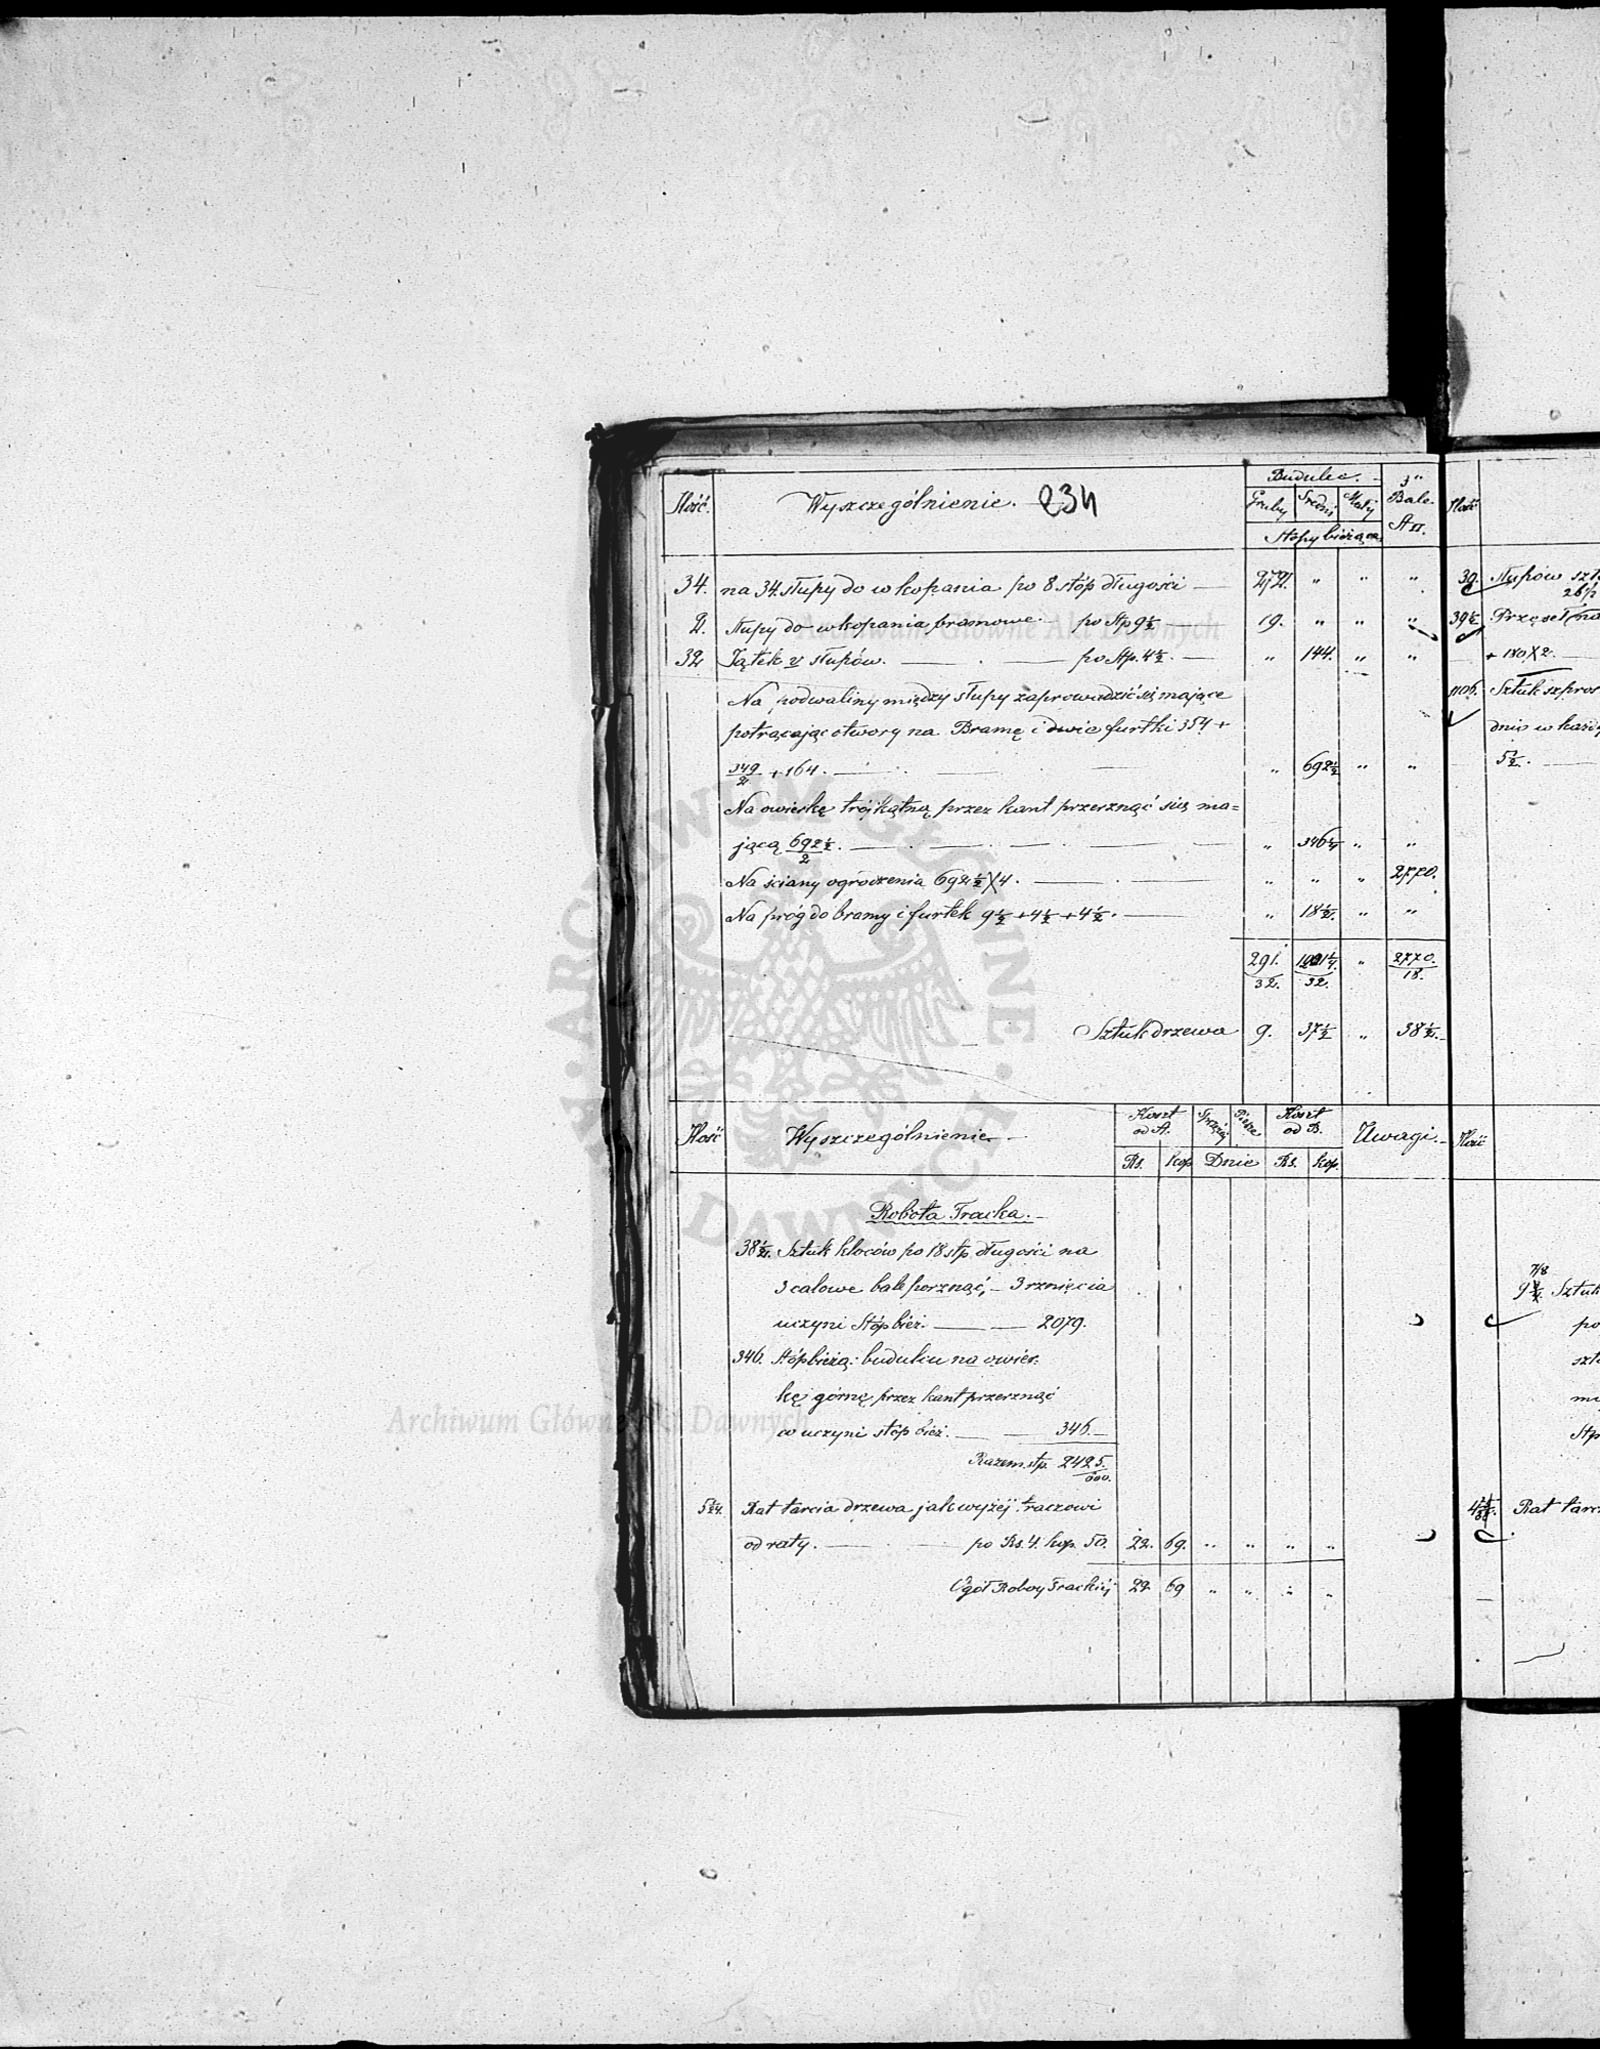 Ilość. Wyszczególnienie. 234 Budulec. 3" Bale
Gruby Średni Mały St II.
Stopy bieżące
34. na 34. słupy do wkopania po 8 stóp długości — 272. " " "
2. słupy do wkopania bramowe. — po Stp 9½ — 19. " " "
32 Jątek v słupów. — po Stp. 4½. — " 144. " "
Na podwaliny między słupy zaprowadzić się mające
potrącając otwory na Bramę i dwie furtki 354 +
349/2 + 164. — " 692½ " "
Na owierkę trójkątną przez kant przerznąć się ma=
jącą 692½/2. — " 346¼ " "
Na ściany ogrodzenia 692½ X 4. — " " " 2770.
Na próg do bramy i furtek 9½ + 4½ + 4½. — " 18½. " "
291./32. 1201¼./32. " 2770./18.
Sztuk drzewa 9. 37½ " 38½.
Ilość Wyszczególnienie Koszt od A. Sprzęż. Piesze Koszt od B. Uwagi.
Rs. kop Dnie Rs. kop.
Robota Tracka.
38½. Sztuk kloców po 18 stp. długości na
3 calowe bale porznąć, — 3 rznięcia
uczyni Stóp bież. — 2079.
346. Stóp bieżą: budulcu na owier.
kę górnę przez kant przerznąć
co uczyni stóp bież. — 346.
Razem stp. 2425./600.
5 1/24. Rat tarcia drzewa jak wyżéj traczowi
od raty. — po Rs. 4. kop. 50. 22. 69. " " " "
Ogół Roboy Trackiéj 22 69 " " " "
Ilość
39. Słupów
39½ Przęseł
+ 180 X 2.
1106. Sztuk
dnio w każdy
5½.
7/8
9 Sztuk
po
Stp
Rat tarc